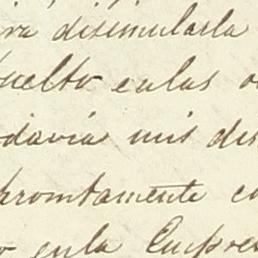 ra disimularla
uelto enlas o
odavia mis des
prontamente co
o enla Empres